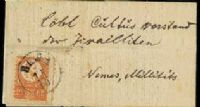 Löbl. Cultus vorstand
der Israeliten
Nemes, Militits